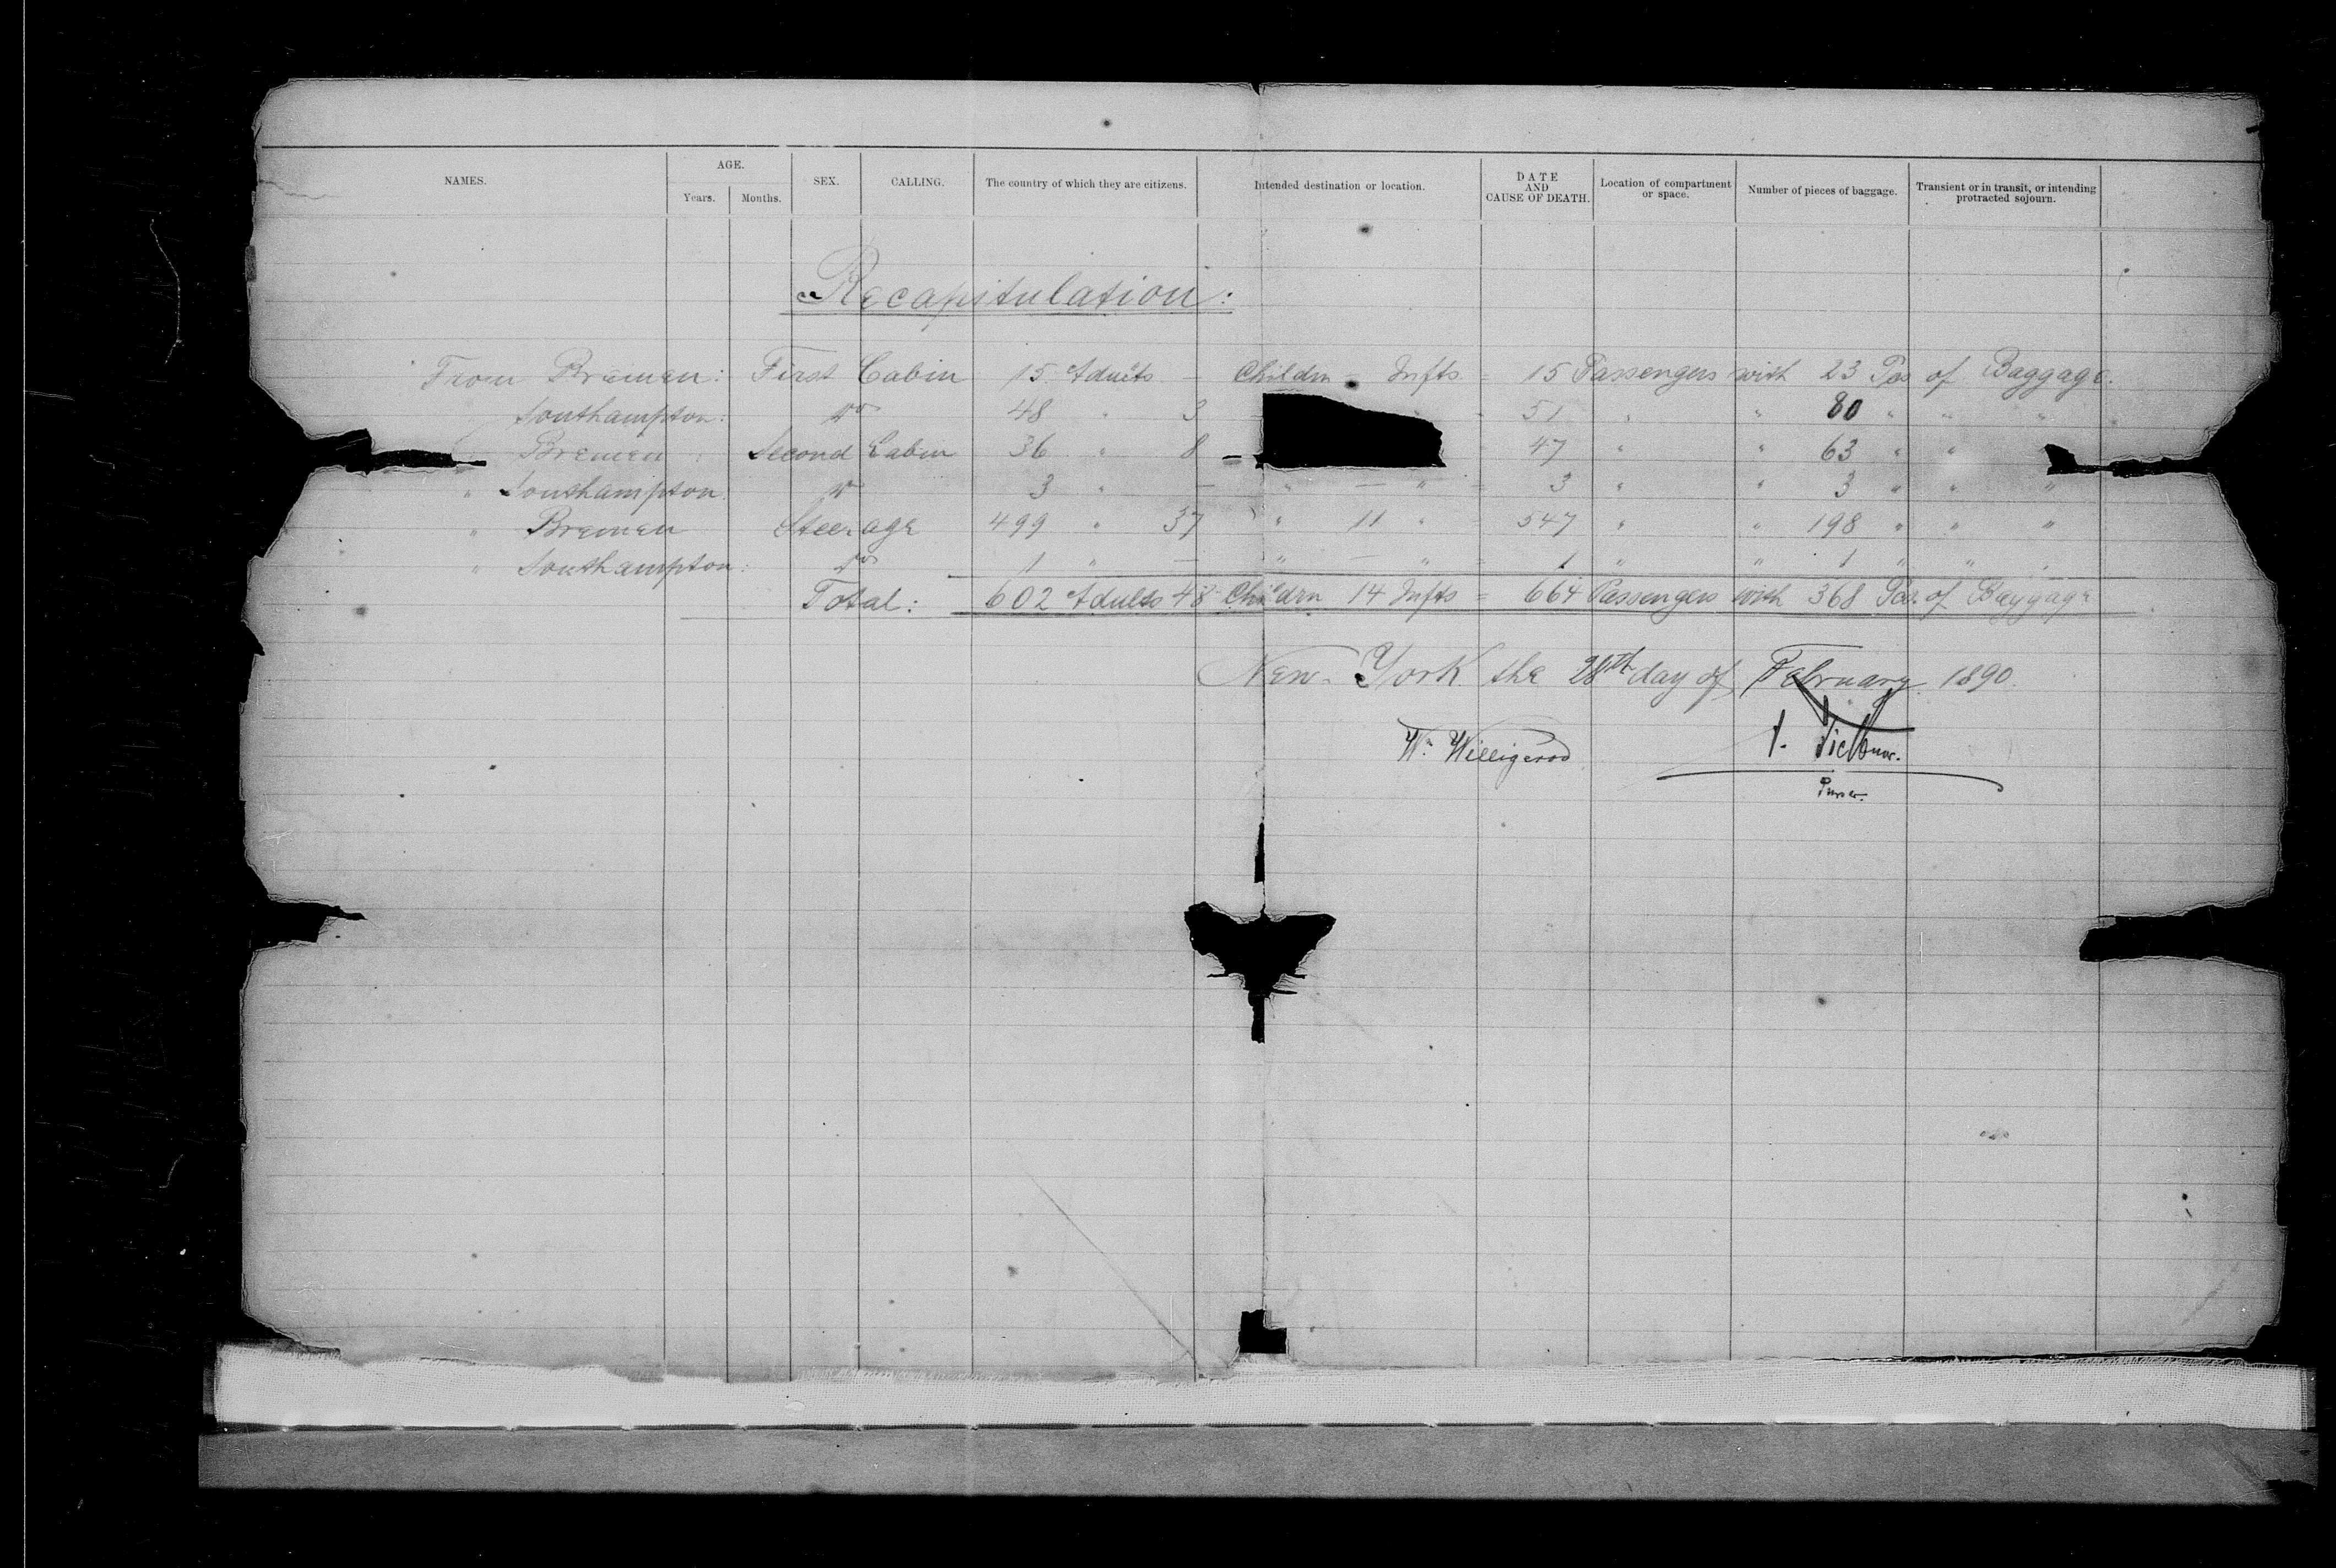 NAMES. AGE. SEX. CALLING. The country of which they are citizens. Intended destination or location. DATE AND CAUSE OF DEATH. Location of compartment or space. Number of pieces of baggage. Transient or in transit, or intending protracted sojourn.
Years. Months.
Recapitulation:
From Bremen: First Cabin 15 Adults — Childrn — Infts = 15 Passengers with 23 Pcs of Baggage.
Southampton: do 48 " 3 " = 51 " " 80 " " "
Bremen : Second Cabin 36 " 8 — = 47 " " 63 " "
" Southampton: do 3 " — " — " = 3 " " 3 " " "
" Bremen Steerage 499 " 37 " 11 " = 547 " " 198 " " "
" Southampton: do 1 " — " — " 1 " " 1 " " "
Total: 602 Adults 48 Childrn 14 Infts = 664 Passengers with 368 Pcs. of Baggage
New-York the 28th day of February 1890.
W. Willigerod
Purser.